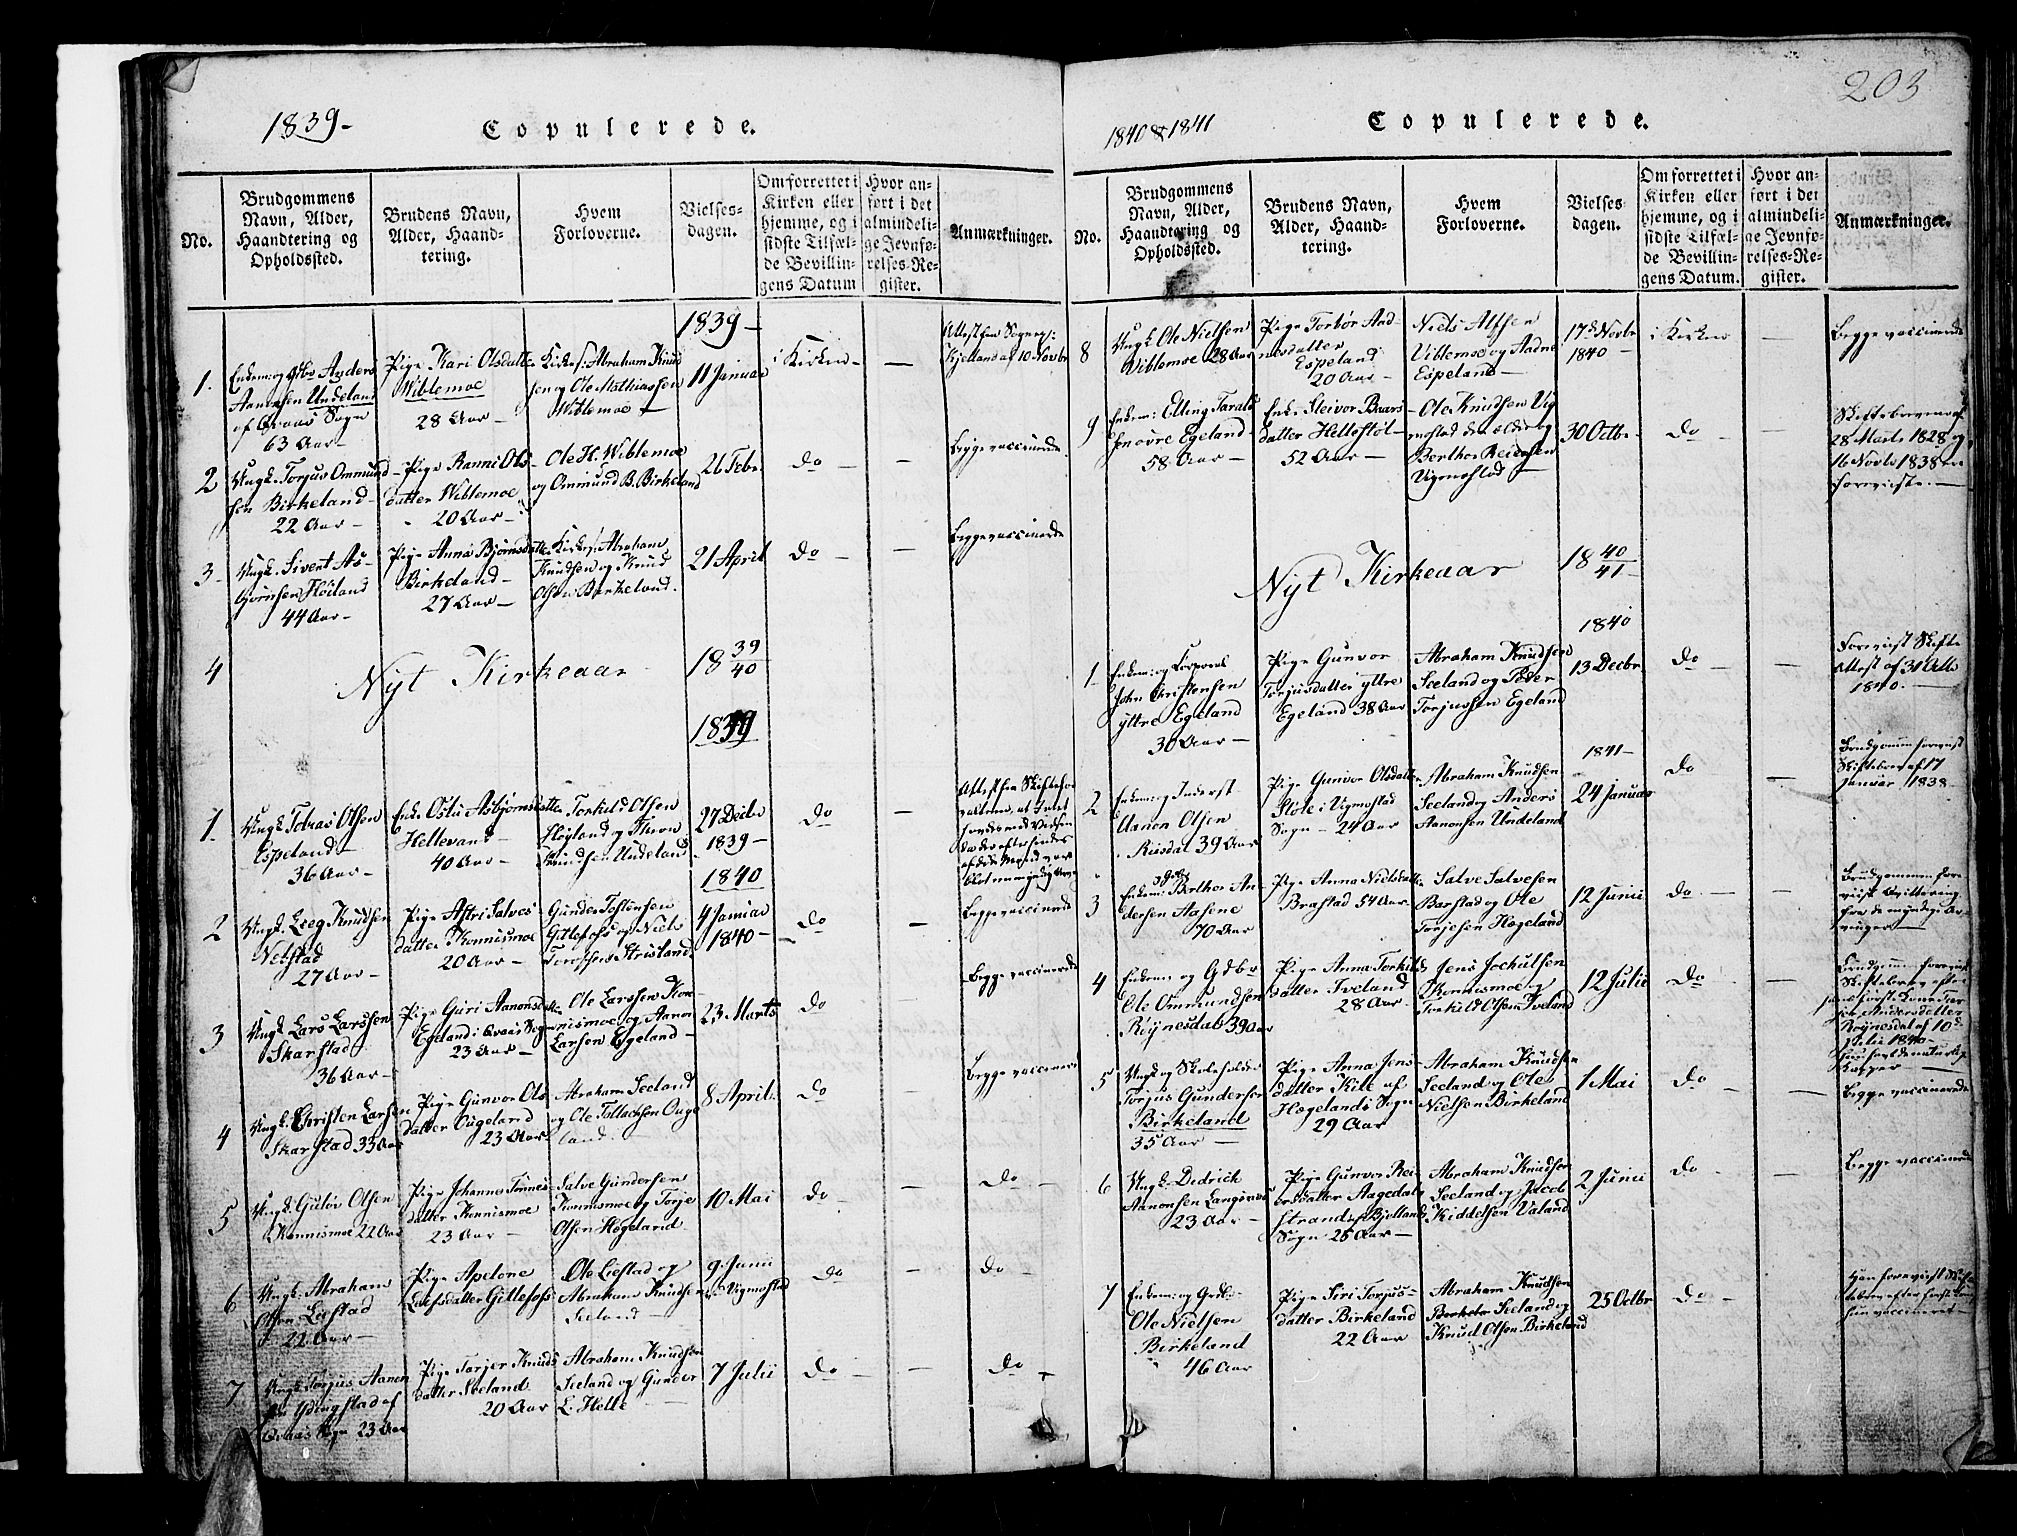 1839-
Copulerede.
No.
Brudgommens
Navn, Alder,
Haandtering og
Opholdssted.
Brudens Navn,
Alder, Haand-
tering.
Hvem
Forloverne.
Vielses-
dagen.
Om forrettet i
Kirken eller
hjemme, og i
sidste Tilfæl-
de Bevillin-
gens Datum
Hvor an-
ført i det
almindeli-
ge Jevnfø-
relses-Re-
gister.
Anmærkninger.
1839-
1.
Anders
Aanensen Undeland
af Sogn
63 Aar-
Pige Kari Olsdatter
Wiblemoe
28 Aar-
Kirkes: Abraham Knud
sen og Ole Mathiassen
Wiblemoe
11 Januar
i Kirken
Attest fra
10 Novbr
2
Ungk. Torjus Ommund
sen Birkeland-
22 Aar-
Pige Ranni Ols
datter Wiblemoe
20 Aar-
Ole H. Wiblemoe
og Ommund B. Birkeland
26 Febr.
do
Begge vaccinerede
3
Ungk. Sivert As-
bjørnsen Høiland
44 Aar-
Pige Anna Bjørnsdatter
Birkeland-
27 Aar-
Kirkes: Abraham
Knudsen og Knud
Olsen Birkeland.
21 April
do
Begge vaccinerede
4
Nyt Kirkeaar
18 39/40
1839
1.
Ungk. Tobias Olsen
Espeland-
36 Aar-
Enke Asbjørnsdatter
Hellevand-
40 Aar-
Torkild Olsen
Høyland og
Knudsen Undeland
27 Decbr
1839-
do
Attest fra
1840
2
Ungk. Knudsen
27 Aar-
Pige Astri Salves
datter Konnismoe
20 Aar-
Gunder Tostensen
Gitlefoss og Niels
4 Januar
1840-
do
Begge vaccinerede
3
Ungk. Lars Larssen
Skarstad
36 Aar-
Pige Guri Aanonsdatter
Egeland i Sogn
23 Aar-
Ole Larssen Kon-
nismoe og Aanon
Larsen Egeland-
23 Marts
do
Begge vaccinerede
4
Ungk. Christen Larsen
Skarstad 33 Aar
Pige Gunvor Ols
datter Ougeland
23 Aar
Abraham Seeland
og Ole Tellachsen Ouge
land.
8 April
do
Begge vaccinerede
5
Ungk. Gutov Olsen
Konnismoe 22 Aar
Pige Johanne Tønnes
datter Konnismoe
23 Aar-
Salve Gundersen
Konnismoe og Torje
Olsen Høgeland.
10 Mai
do
do
6
Ungk. Abraham
Olsen Liestad
22 Aar-
Pige Apelone
Leifsdatter Gitlefoss
Ole Liestad og
Abraham Knudsen
Seeland-
9. Junii
i Vigmostad
do
do
7
Ungk. Torjus Aanen
sen Ydingstad af
Sogn 23 Aar
Pige Tarjer Knuds
datter Seeland
20 Aar
Abraham Knudsen
Seeland og Gunder
L. Helle
7 Julii
do
do
203
1840 & 1841
Copulerede.
No.
Brudgommens
Navn, Alder,
Haandtering og
Opholdssted.
Brudens Navn,
Alder, Haand-
tering.
Hvem
Forloverne.
Vielses
dagen.
Om forrettet i
Kirken eller
hjemme, og i
sidste Tilfæl-
de Bevillin-
gens Datum.
Hvor an-
ført i det
almindeli-
ge Jevnfø-
relses-Re-
gister.
Anmærkninger.
8
Ungk. Ole Nielsen
Viblemoe 28 Aar
Pige Torbør Aad-
nesdatter
Espeland
20 Aar-
Niels Alfsen
Viblemoe og Aadne
Espeland-
17d Novbr
1840-
i Kirken
Begge vaccinerede
9
Enkem: Elling Tarald
sen øvre Egeland-
58 Aar-
Enke Steivor Baars
datter Hellestøl-
52 Aar-
Ole Knudsen Vig
mostad den ældre og
Berthe Reiersen
Vigmostad-
30 Octbr-
do
Skiftebreve af
28 Marts 1828 og
16 Novbr 1838 er
foreviiste.
Nyt Kirkeaar
18 40/41
1840
1
Enkem: og Corporal
John Christensen
yttre Egeland
30 Aar-
Pige Gunvor
Torjusdatter yttre
Egeland 38 Aar
Abraham Knudsen
Seeland og Peder
Torjussen Egeland
13 Decbr
do
Foreviist Skifte
Attest af 31 Octbr
1840.
1841-
2
Enkem: og Inderst
Aanen Olsen
Risdal 39 Aar
Pige Gunvor Olsdatter
Støle i Vigmostad
Sogn - 24 Aar
Abraham Knudsen
Seeland og Anders
Aanonsen Undeland
24 Januar
do
Brudgommen foreviist
Skiftebrev af 17
Januar 1838-
3
Enkem: Berthor An
dersen Aasene
70 Aar
Pige Anna Nielsdatter
Brastad 54 Aar
Salve Salvesen
Barstad og Ole
Torjesen Høgeland
12 Junii
do
Brudgommen fore
viist Qvittering
fra de myndige Ar
vinger-
4
Enkem. og Gdbr
Ole Ommundsen
Røynesdal 39 Aar
Pige Anna Torkilds
datter Iveland
28 Aar
Jens Jochulsen
Konnismoe og
Torkild Olsen Iveland
12 Julii
do
Røynesdal af 10d
Julii 1840-
5
Ungk. og Skoleholder
Torjus Gundersen
Birkeland
35 Aar-
Pige Anna Jens
datter Kile af
Hægelands Sogn
29 Aar
Abraham Knudsen
Seeland og Ole
Nielsen Birkeland
1 Mai
do
Begge vaccinerede
6
Ungk. Didrich
Aanonsen Langenæs
23 Aar-
Pige Gunvor Rei
ersdatter Aagedal
strand af Bjellands
Sogn 28 Aar-
Abraham Knudsen
Seeland og Jacob
Kiddelsen Valand
2 Junii
do
Begge vaccinerede
7
Enkem: og Grdb.
Ole Nielsen
Birkeland
46 Aar
Pige Siri Torjus-
datter Birkeland
22 Aar
Abraham Knudsen
Seeland og
Knud Olsen Birkeland
25 Octbr
do
Han foreviist Skif
tebrev efter første
hun vaccineret-